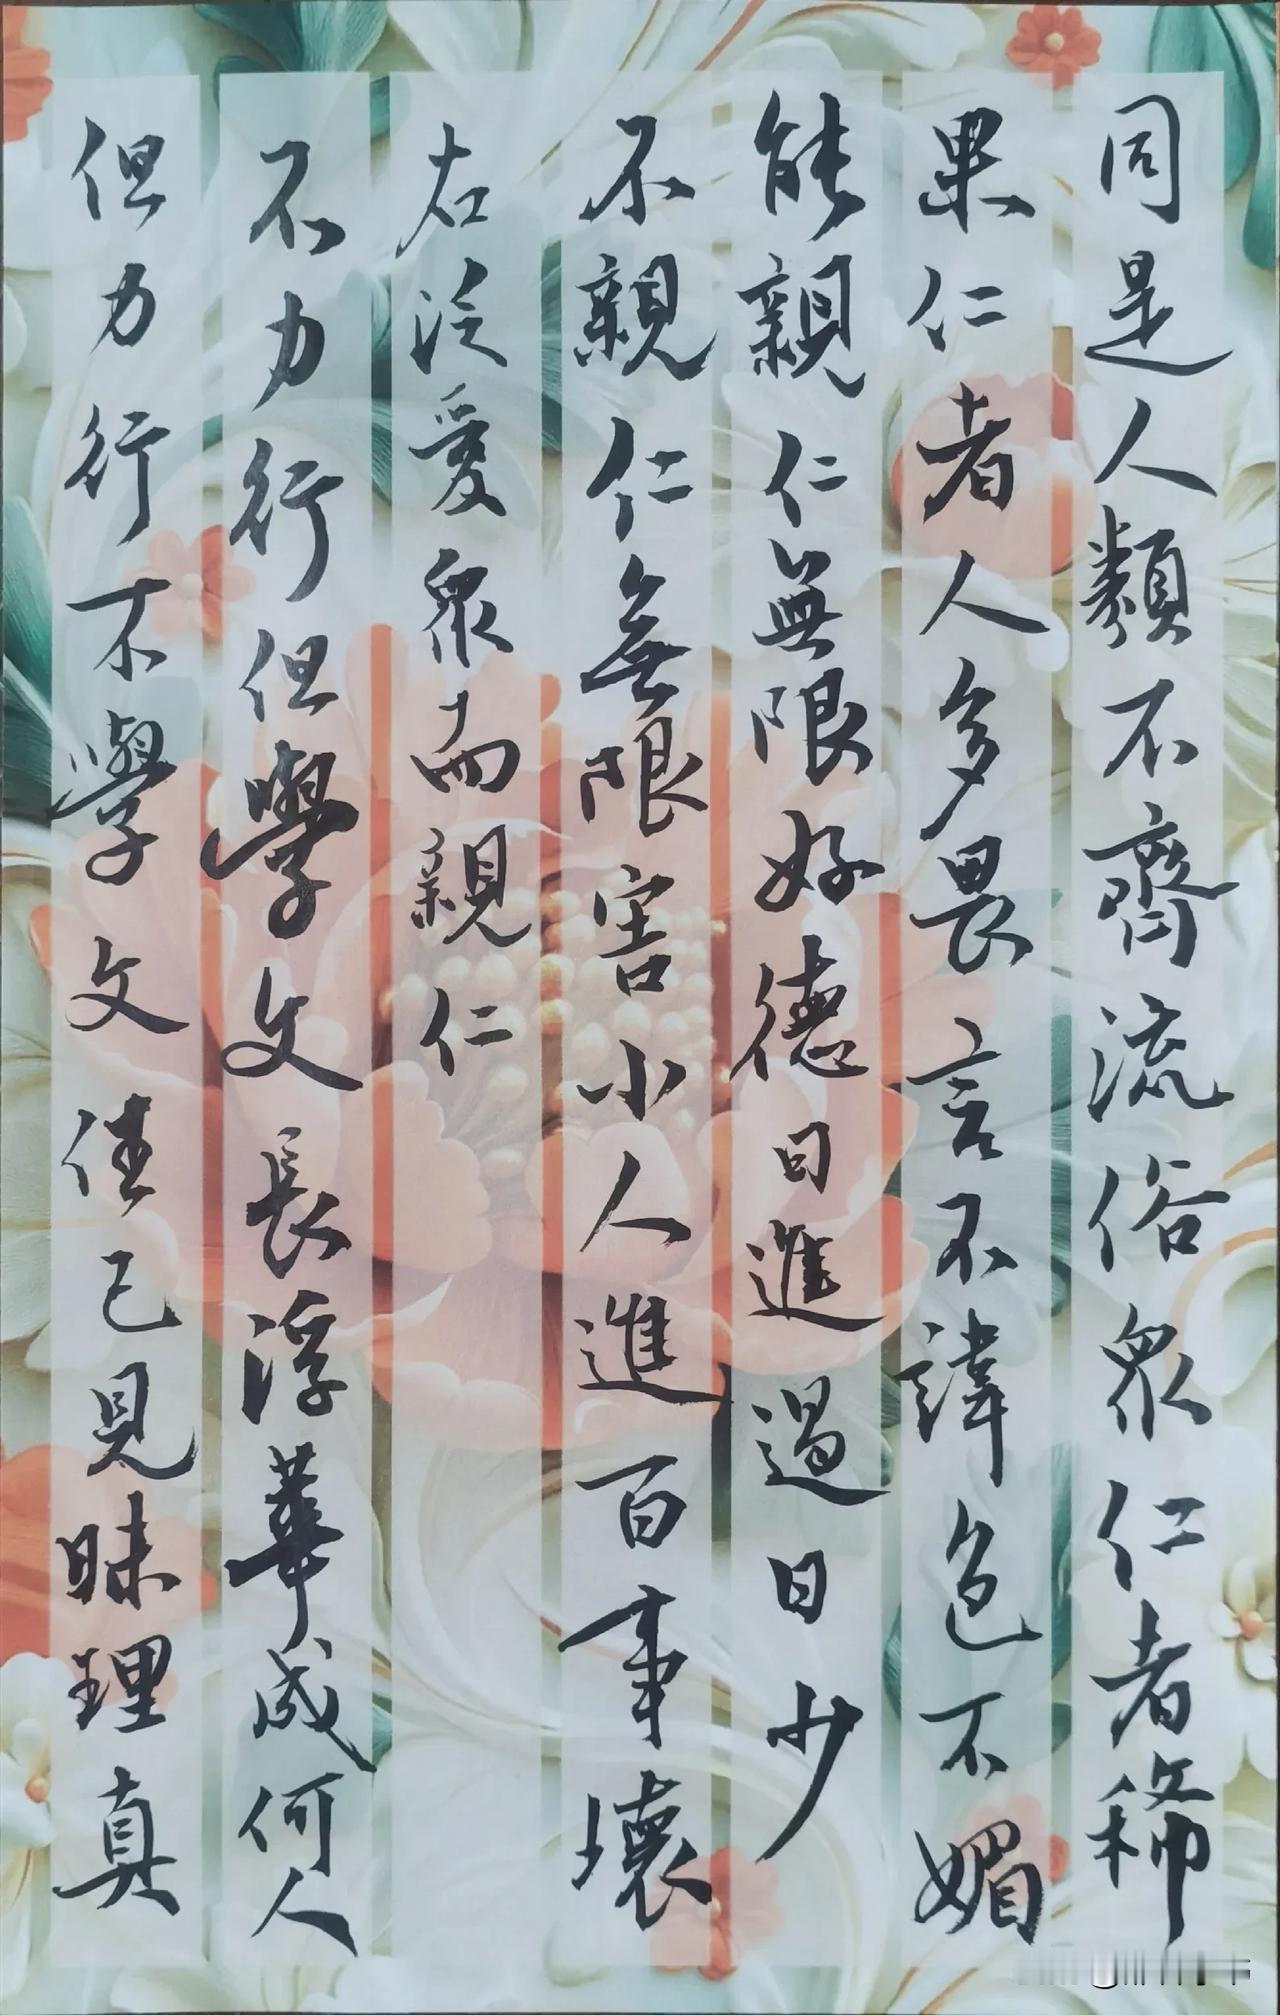 同是人類不齊流俗眾仁者稀
果仁者人多畏言不諱色不媚
能親仁無限好德日進過日少
不親仁無限害小人進百事壞
右泛愛眾而親仁
不力行但學文長浮華成何人
但力行不學文任己見昧理真